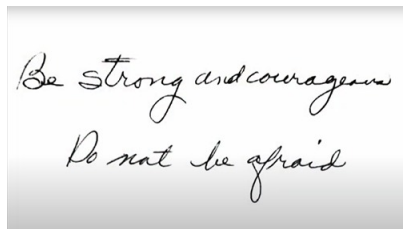 Be strong and courageous
Do not be afraid